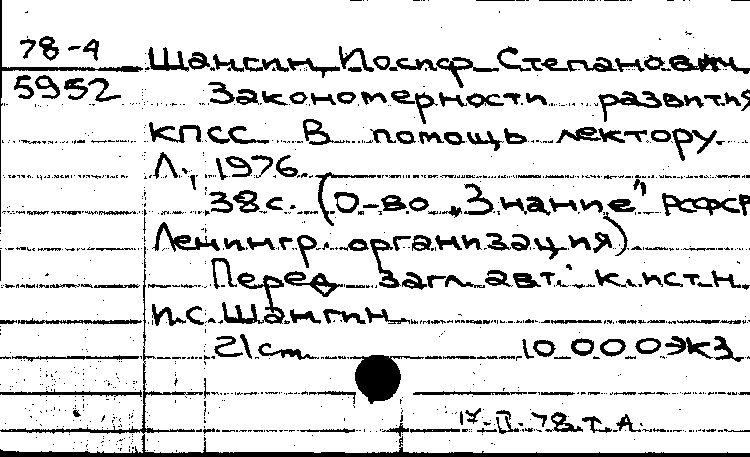 78-4 Шангин, Иосиф Степанович.
5952 Закономерности развития
КПСС. В помощь лектору.
Л., 1976.
38 с. (О-во „Знание" РСФСР
Ленингр. организация).
Перед загл. авт.: к. ист. н.
И.С. Шангин.
21 см. 10 000 экз.
17-II-78. т. А.